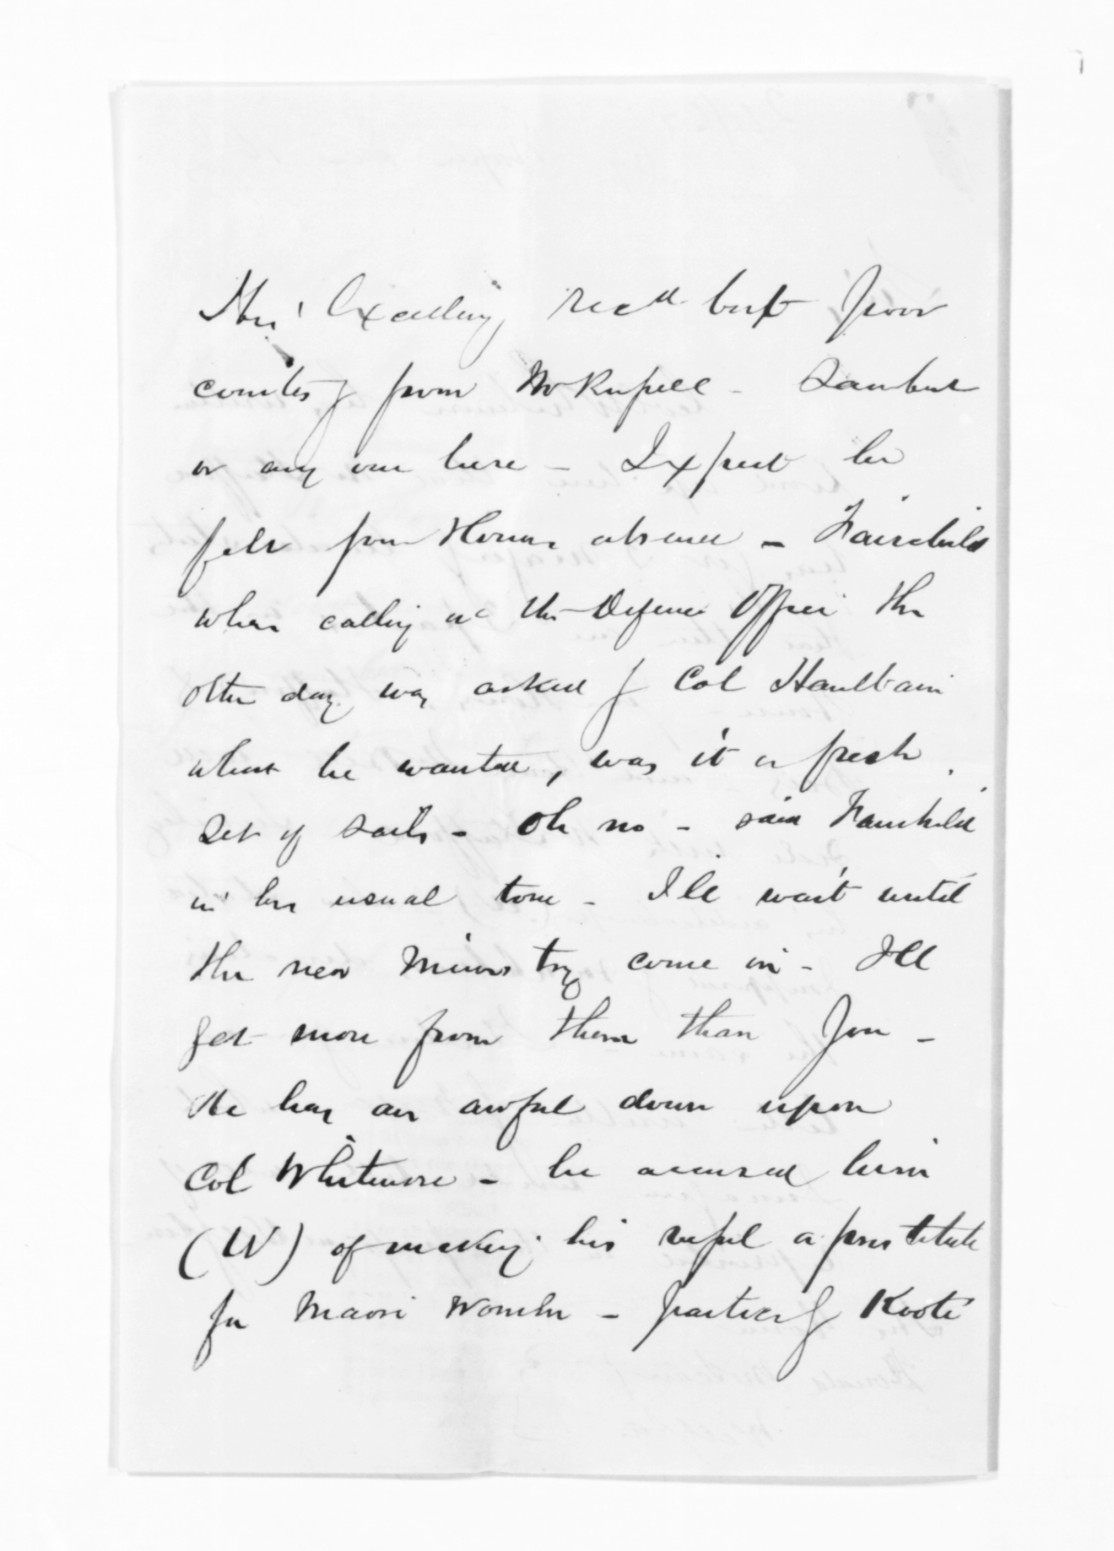 His Excellency recd but poor
courtesy from Mr Russell - Lambert
or any one here - I expect he
felt your Honor absence - Fairchild
when calling at the Defence Office the
other day was asked by Col Haultain
what he wanted, was it a fresh
set of sails - oh no - said Fairchild
in his usual tone - I'll wait until
the new Ministry come in - I'll
get more from them than you -
He has an awful down upon
Col Whitmore - he accused him
(W) of making his vessel a prostitute
for Maori Women - Kooti